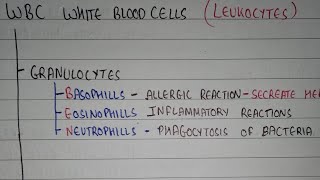 WBC WHITE BLOOD CELLS (LEUKOCYTES)
GRANULOCYTES
BASOPHILLS - ALLERGIC REACTION - SECREATE
EOSINOPHILLS INFLAMMATORY REACTIONS
NEUTROPHILLS - PHAGOCYTOSIS OF BACTERIA